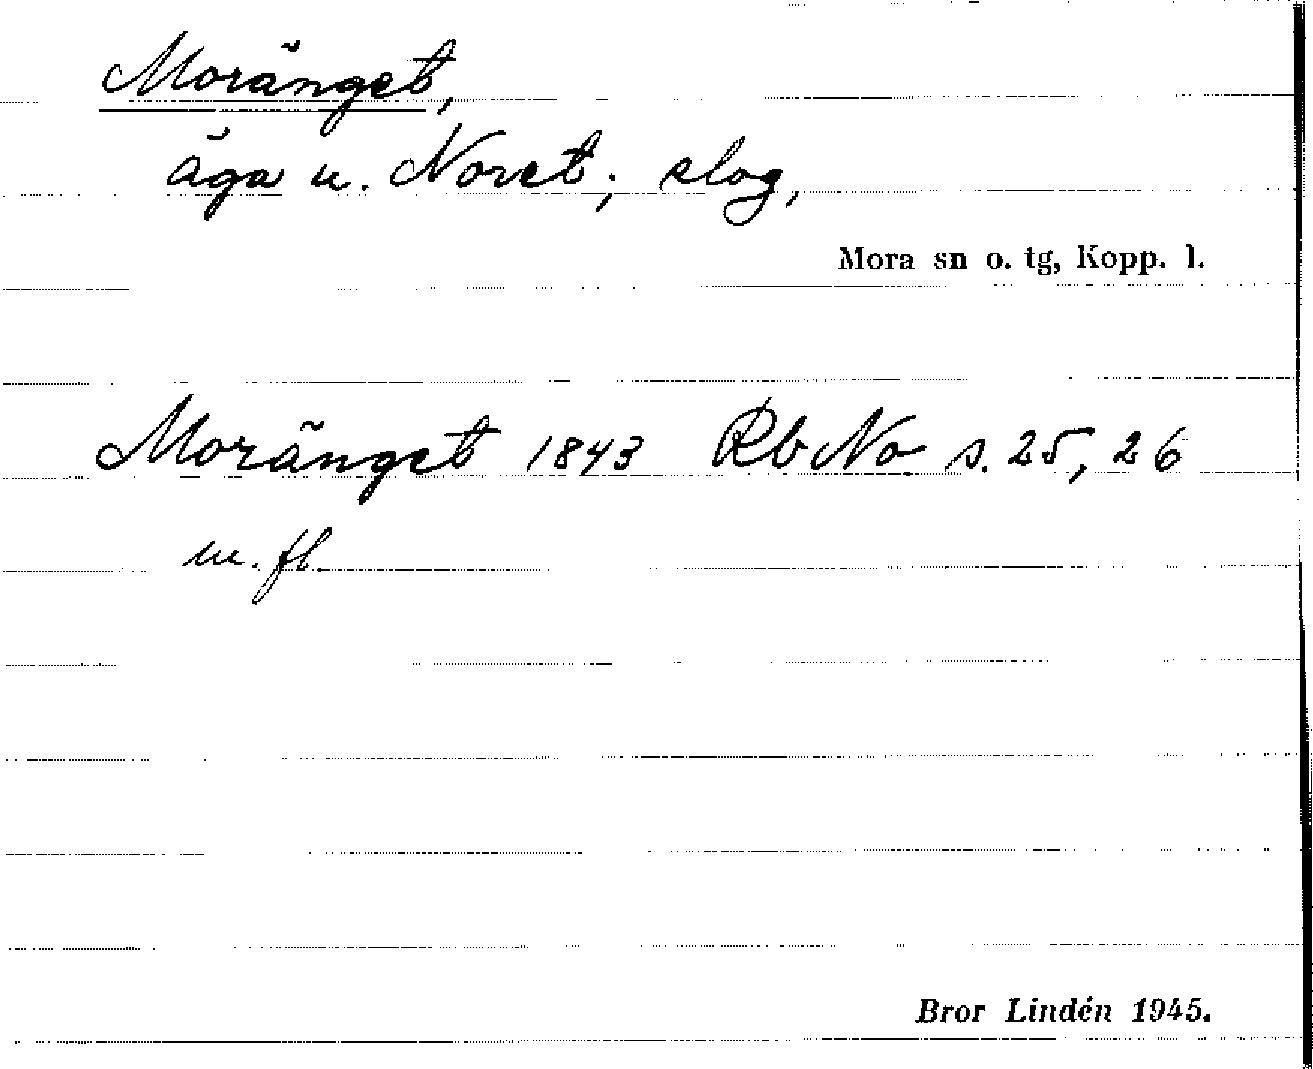 Moränget,
äga u. Noret; slog,
Mora sn o. tg, Kopp. l.
Moränget 1843 Rb No s. 25, 26
m. fl.
Bror Lindén 1945.